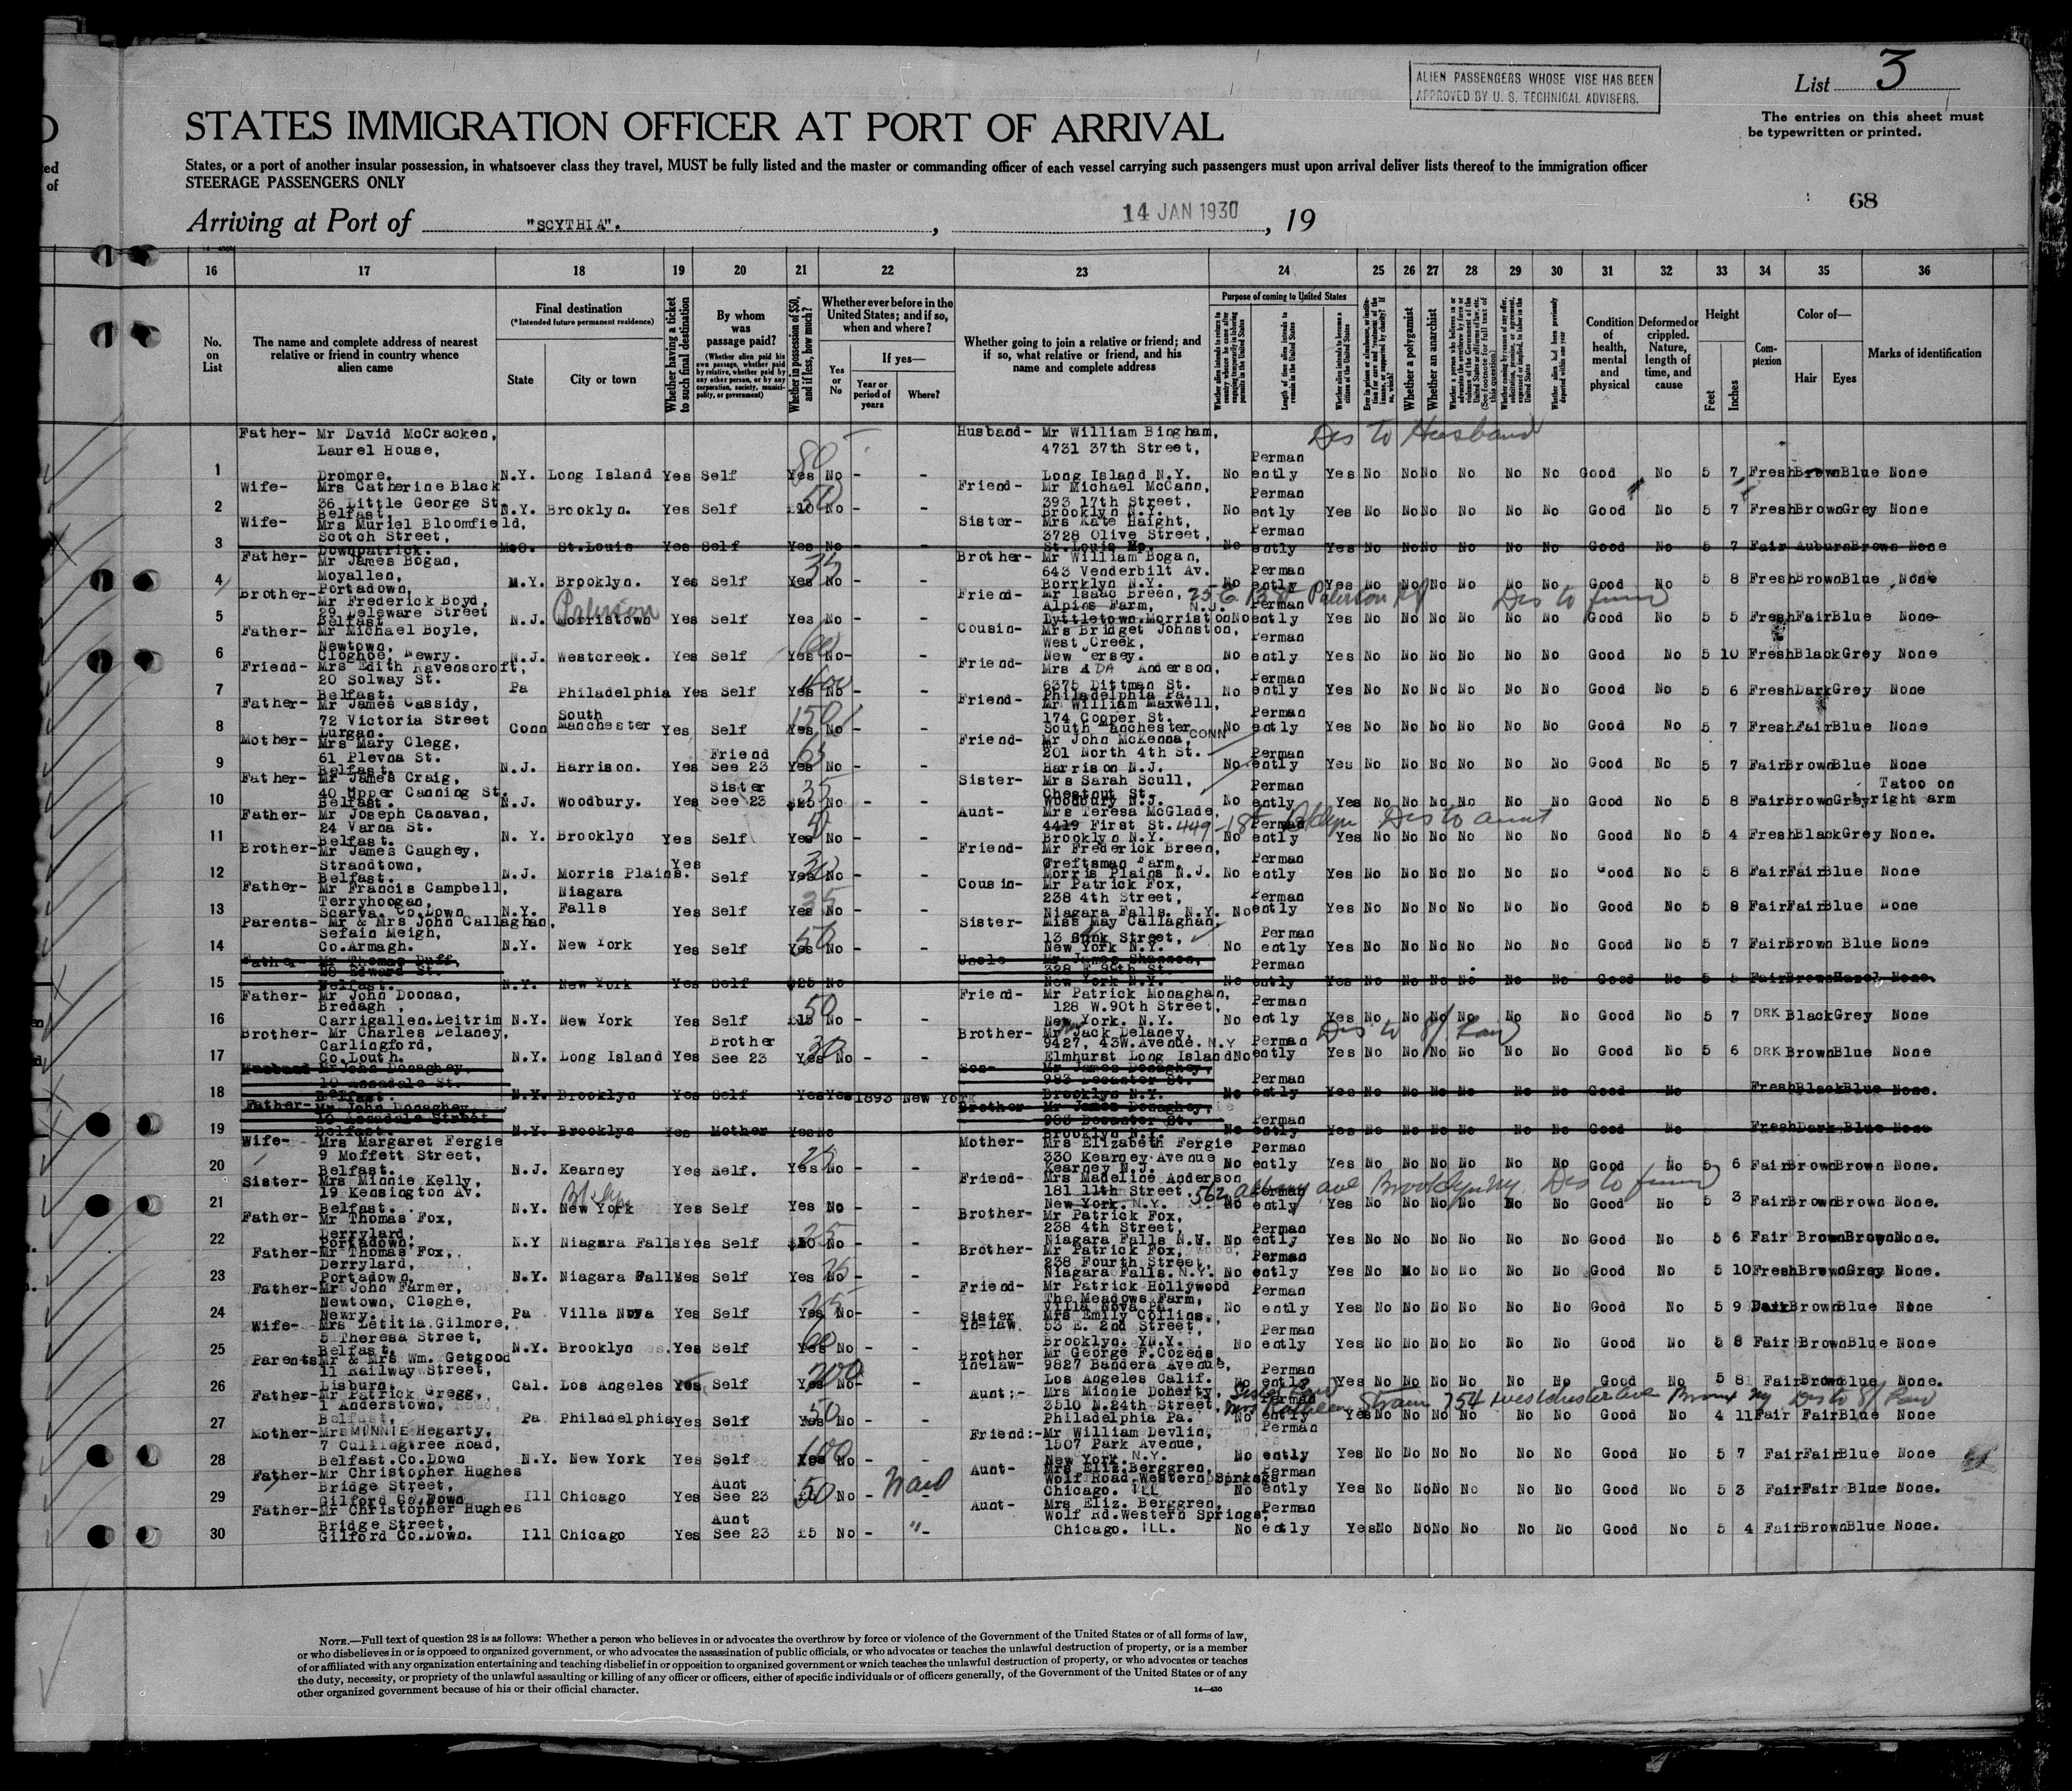 ALIEN PASSENGERS WHOSE VISE HAS BEEN
APPROVED BY U. S. TECHNICAL ADVISERS.
List 3
The entries on this sheet must
be typewritten or printed.
STATES IMMIGRATION OFFICER AT PORT OF ARRIVAL
States, or a port of another insular possession, in whatsoever class they travel, MUST be fully listed and the master or commanding officer of each vessel carrying such passengers must upon arrival deliver lists thereof to the immigration officer
STEERAGE PASSENGERS ONLY
68
Arriving at Port of "SCYTHIA". , 14 JAN 1930 , 19
16 17 18 19 20 21 22 23 24 25 26 27 28 29 30 31 32 33 34 35 36
No. on List
The name and complete address of nearest relative or friend in country whence alien came
Final destination
(*Intended future permanent residence)
State
City or town
Whether having a ticket to such final destination
By whom was passage paid?
Whether in possession of $50, and if less, how much?
Whether ever before in the United States; and if so, when and where?
Yes or No
If yes—
Year or period of years
Where?
Whether going to join a relative or friend; and if so, what relative or friend, and his name and complete address
Purpose of coming to United States
Whether a polygamist
Whether an anarchist
Condition of health, mental and physical
Deformed or crippled. Nature, length of time, and cause
Height
Feet
Inches
Complexion
Color of—
Hair
Eyes
Marks of identification
Father- Mr David McCracken, Husband- Mr William Bingham, Des to Husband
Laurel House, 4731 37th Street,
1 Dromore. N.Y. Long Island Yes Self Yes No - - Long Island N.Y. No Permanently Yes No No No No No No Good No 5 7 Fresh Brown Blue None
Wife- Mrs Catherine Black Friend- Mr Michael McCann,
36 Little George St 393 17th Street,
2 Belfast. N.Y. Brooklyn. Yes Self £10 No - - Brooklyn N.Y. No Permanently Yes No No No No No No Good No 5 7 Fresh Brown Grey None
Wife- Mrs Muriel Bloomfield, Sister- Mrs Kate Haight,
Scotch Street, 3728 Olive Street,
3 Downpatrick. St.Louis Yes Self Yes No St.Louis Mo. No Permanently Yes No No No No No No Good No 5 7 Fair Auburn Brown None
Father- Mr James Bogan, Brother- Mr William Bogan,
Moyallen, 643 Venderbilt Av.
4 Portadown, N.Y. Brooklyn. Yes Self Yes No - - Borrklyn N.Y. No Permanently Yes No No No No No No Good No 5 8 Fresh Brown Blue None
Brother- Mr Frederick Boyd, Friend- Mr Isaac Breen, Paterson NJ
29 Deleware Street Paterson Alpine Farm, N.J.
5 Belfast N.J. Morristown Yes Self Yes No - - Lyttletown.Morriston No Permanently Yes No No No No No No Good No 5 5 Fresh Fair Blue None
Father- Mr Michael Boyle, Cousin- Mrs Bridget Johnston,
Newtown, West Creek,
6 Cloghoe, Newry. N.J. Westcreek. Yes Self Yes No - - New ersey. No Permanently Yes No No No No No No Good No 5 10 Fresh Black Grey None
Friend- Mrs Edith Ravenscroft, Friend- Mrs ADA Anderson,
20 Solway St. 6375 Dittman St.
7 Belfast. Pa Philadelphia Yes Self Yes No - - Philadelphia Pa. No Permanently Yes No No No No No No Good No 5 6 Fresh Dark Grey None
Father- Mr James Cassidy, Friend- Mr William Maxwell,
72 Victoria Street South 174 Cooper St.
8 Lurgan. Conn Manchester Yes Self 150 Yes No - - South anchester CONN No Permanently Yes No No No No No No Good No 5 7 Fresh Fair Blue None
Mother- Mrs Mary Clegg, Friend- Mr John McKenna,
61 Plevna St. Friend 201 North 4th St.
9 Belfast. N.J. Harrison. Yes See 23 Yes No - - Harrison N.J. No Permanently Yes No No No No No No Good No 5 7 Fair Brown Blue None
Father- Mr James Craig, Sister- Mrs Sarah Scull, Tatoo on
40 Upper Canning St. Sister Chestnut St.
10 Belfast. N.J. Woodbury. Yes See 23 $25 No - - Woodbury N.J. No Permanently Yes No No No No No No Good No 5 8 Fair Brown Grey right arm
Father- Mr Joseph Canavan, Aunt- Mrs Teresa McGlade, Des to aunt
24 Varna St. 4419 First St.
11 Belfast. N.Y. Brooklyn Yes Self Yes No - - Brooklyn N.Y. No Permanently Yes No No No No No No Good No 5 4 Fresh Black Grey None.
Brother- Mr James Caughey, Friend- Mr Frederick Breen,
Strandtown, Creftsman Farm.
12 Belfast. N.J. Morris Plains. Yes Self Yes No - - Morris Plains N.J. No Permanently Yes No No No No No No Good No 5 8 Fair Fair Blue None
Father- Mr Francis Campbell, Cousin- Mr Patrick Fox,
Terryhoogan, Niagara 238 4th Street,
13 Scarva. Co.Down N.Y. Falls Yes Self Yes No - - Niagara Falls. N.Y. No Permanently Yes No No No No No No Good No 5 8 Fair Fair Blue None
Parents- Mr & Mrs John Callaghan, Sister- Miss May Callaghan,
Sefain Meigh, 13 Street,
14 Co.Armagh. N.Y. New York Yes Self Yes No - - New York N.Y. No Permanently Yes No No No No No No Good No 5 7 Fair Brown Blue None
Father- Mr Thomas Duff, Uncle- Mr James Shannon,
28 Edward St. 328 E 99th St.
15 Belfast. N.Y. New York Yes Self $25 No New York N.Y. No Permanently Yes No No No No No No Good No Fair Brown Hazel None.
Father- Mr John Doonan, Friend- Mr Patrick Monaghan,
Bredagh, 128 W.90th Street,
16 Carrigallen.Leitrim N.Y. New York Yes Self £15 50 No - - New York. N.Y. No Permanently Yes No No No No No No Good No 5 7 DRK Black Grey None
Brother- Mr Charles Delaney, Brother- Mr Jack Delaney,
Carlingford, Brother 9427, 43W.Avenue. N.Y
17 Co.Louth. N.Y. Long Island Yes See 23 Yes No - - Elmhurst Long Island No Permanently Yes No No No No No No Good No 5 6 DRK Brown Blue None
Husband Mr John Donaghey, Son- Mr James Donaghey,
10 Annadale St. 983 Decaster St.
18 Belfast. N.Y. Brooklyn Yes Self Yes Yes 1893 New York Brooklyn N.Y. No Permanently Yes No No No No No No Good No Fresh Black Blue None.
Father- Mr John Donaghey, Brother Mr James Donaghey,
10 Annadale Street 983 Decaster St.
19 Belfast. N.Y. Brooklyn Yes Mother Yes No Brooklyn N.Y. No Permanently Yes No No No No No No Good No Fresh Dark Blue None
Wife- Mrs Margaret Fergie Mother- Mrs Elizabeth Fergie
9 Moffett Street, 330 Kearney Avenue
20 Belfast. N.J. Kearney Yes Self. Yes No - - Kearney N.J. No Permanently Yes No No No No No No Good No 5 6 Fair Brown Brown None.
Sister- Mrs Minnie Kelly, Friend- Mrs Madeline Anderson
19 Kensington Av. 181 11th Street. 562 albany ave Brooklyn ny Des to friend
21 Belfast. N.Y. New York Yes Self Yes No - - New York. N.Y. No Permanently Yes No No No No No No Good No 5 3 Fair Brown Brown None.
Father- Mr Thomas Fox, Brother- Mr Patrick Fox,
Derrylard, 238 4th Street,
22 Portadown. N.Y Niagara Falls Yes Self No - - Niagara Falls N.Y. No Permanently Yes No No No No No No Good No 5 6 Fair Brown Brown None.
Father- Mr Thomas Fox, Brother- Mr Patrick Fox,
Derrylard, 238 Fourth Street,
23 Portadown, N.Y. Niagara Falls Yes Self Yes No - - Niagara Falls. N.Y. No Permanently Yes No No No No No No Good No 5 10 Fresh Brown Grey None.
Father- Mr John Farmer, Friend- Mr Patrick Hollywood
Newtown, Cloghe, The Meadows Farm,
24 Newry. Pa Villa Nova Yes Self Yes No - - Villa Nova Pa. No Permanently Yes No No No No No No Good No 5 9 Dark Brown Blue None
Wife- Mrs Letitia Gilmore, Sister In-law Mrs Emily Collins.,
5 Theresa Street, 53 E. 2nd Street,
25 Belfast. N.Y. Brooklyn Yes Self 60 Yes No - - Brooklyn. N.Y. No Permanently Yes No No No No No No Good No 5 8 Fair Brown Blue None
Parents Mr & Mrs Wm. Getgood Brother Inelaw- Mr George F.Cozens
11 Railway Street, 9827 Bandera Avenue,
26 Lisburn. Cal. Los Angeles Yes Self 200 Yes No - - Los Angeles Calif. No Permanently Yes No No No No No No Good No 5 8 Fair Brown Blue None.
Father- Mr Patrick Gregg, Aunt:- Mrs Minnie Doherty,
1 Anderstown, 3510 N.24th Street, Mrs Kathleen Strain 754 Westchester ave Bronx ny
27 Belfast, Pa. Philadelphia Yes Self 50 Yes No - - Philadelphia Pa. No Permanently Yes No No No No No No Good No 4 11 Fair Fair Blue None
Mother- Mrs MINNIE Hegarty, Friend:- Mr William Devlin,
7 Cullingtree Road, 1507 Park Avenue,
28 Belfast.Co.Down N.Y. New York Yes Self 100 Yes No - - New York. N.Y. No Permanently Yes No No No No No No Good No 5 7 Fair Fair Blue None
Father- Mr Christopher Hughes Aunt- Mrs Eliz.Berggren,
Bridge Street, Aunt Wolf Road.Western Springs
29 Gilford Co.Down Ill Chicago Yes See 23 50 No - - Chicago. ILL No Permanently Yes No No No No No No Good No 5 3 Fair Fair Blue None.
Father- Mr Christopher Hughes Aunt- Mrs Eliz. Berggren,
Bridge Street, Aunt Wolf Rd.Western Springs,
30 Gilford Co.Down. Ill Chicago Yes See 23 £5 No - "- Chicago. ILL. No Permanently Yes No No No No No No Good No 5 4 Fair Brown Blue None.
NOTE.—Full text of question 28 is as follows: Whether a person who believes in or advocates the overthrow by force or violence of the Government of the United States or of all forms of law,
or who disbelieves in or is opposed to organized government, or who advocates the assassination of public officials, or who advocates or teaches the unlawful destruction of property, or is a member
of or affiliated with any organization entertaining and teaching disbelief in or opposition to organized government or which teaches the unlawful destruction of property, or who advocates or teaches
the duty, necessity, or propriety of the unlawful assaulting or killing of any officer or officers, either of specific individuals or of officers generally, of the Government of the United States or of any
other organized government because of his or their official character.
14—430